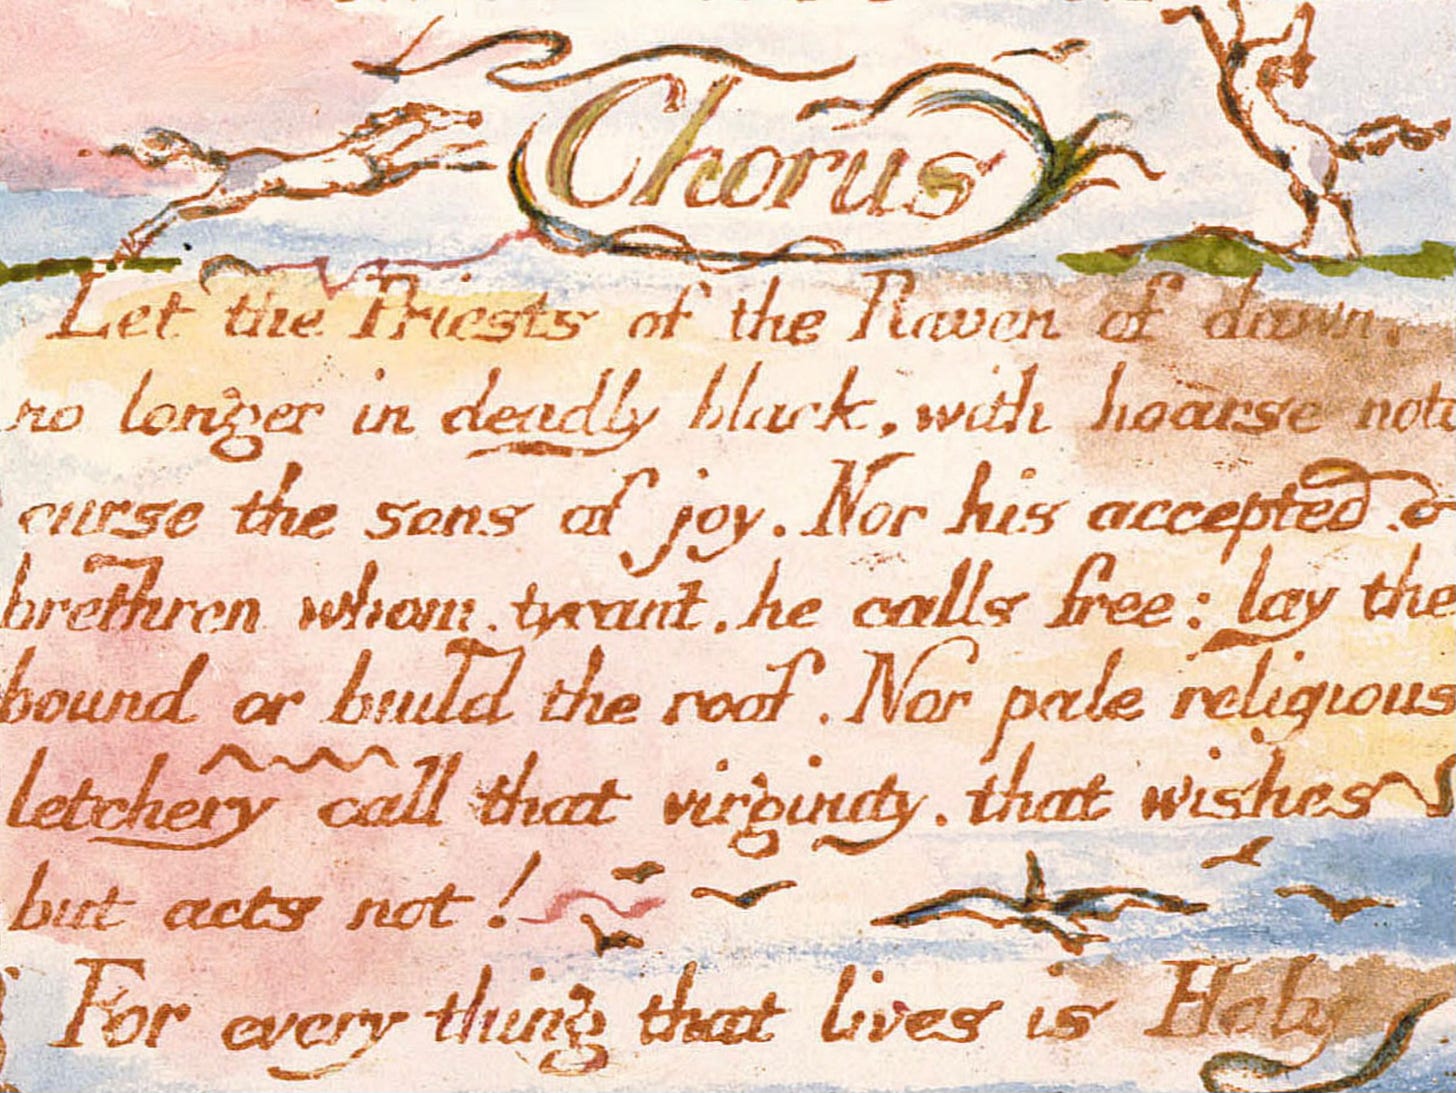 Chorus
Let the Priests of the Raven of dawn,
no longer in deadly black, with hoarse note
curse the sons of joy. Nor his accepted
brethren whom, tyrant, he calls free: lay the
bound or build the roof. Nor pale religious
letchery call that virginity, that wishes
but acts not!
For every thing that lives is Holy